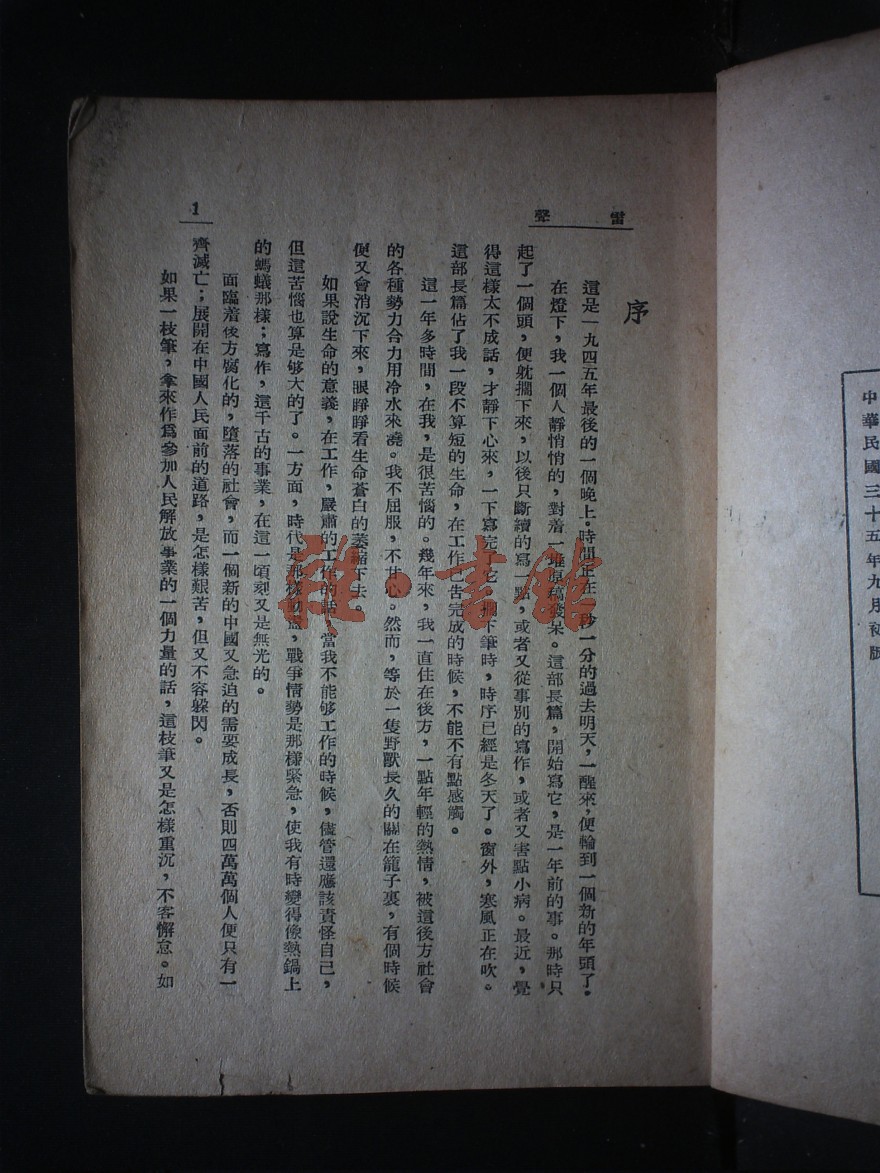 中華民國三十五年九月初版
雷聲
序
這是一九四五年最後的一個晚上。時間正在一秒一分的過去明天，一醒來，便輪到一個新的年頭了。
在燈下，我一個人靜悄悄的，對着一堆原稿發呆。這部長篇，開始寫它，是一年前的事。那時只
起了一個頭，便躭擱下來，以後只斷續的寫一點，或者又從事別的寫作，或者又害點小病。最近，覺
得這樣太不成話，才靜下心來，一下寫完了它。擱下筆時，時序已經是冬天了。窗外，寒風正在吹。
這部長篇佔了我一段不算短的生命，在工作已告完成的時候，不能不有點感觸。
這一年多時間，在我，是很苦惱的。幾年來，我一直住在後方，一點年輕的熱情，被這後方社會
的各種勢力合力用冷水來澆。我不屈服，不甘心。然而，等於一隻野獸長久的關在籠子裏，有個時候
便又會消沉下來，眼睜睜看生命蒼白的萎縮下去。
如果說生命的意義，在工作，嚴肅的工作的話，當我不能够工作的時候，儘管還應該責怪自己，
但這苦惱也算是够大的了。一方面，時代是那樣動盪，戰爭情勢是那樣緊急，使我有時變得像熱鍋上
的螞蟻那樣；寫作，這千古的事業，在這一頃刻又是無光的。
面臨着後方腐化的，墮落的社會，而一個新的中國又急迫的需要成長，否則四萬萬個人便只有一
齊滅亡；展開在中國人民面前的道路，是怎樣艱苦，但又不容躲閃。
如果一枝筆，拿來作爲參加人民解放事業的一個力量的話，這枝筆又是怎樣重沉，不容懈怠。如
1
雜·書館